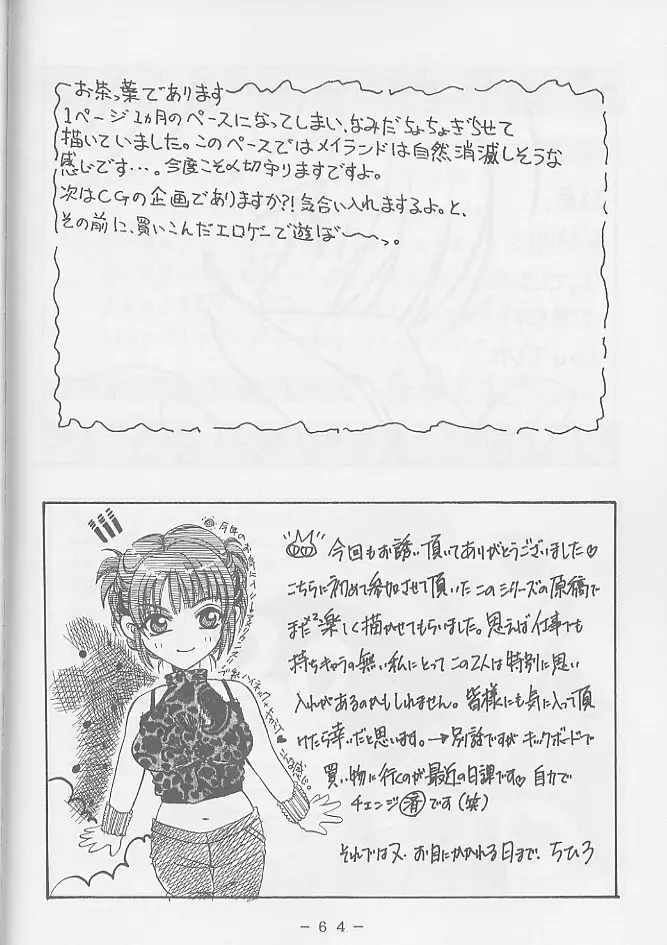 お茶っ葉であります
1ページ1ヵ月のペースになってしまい、なみだちょちょぎらせて
描いていました。このペースではメイランドは自然消滅しそうな
感じです…。今度こそ〆切守りますですよ。
次はCGの企画でありますか?!気合い入れまするよ。と、
その前に、買いこんだエロゲーで遊ぼ〜〜っ。
今回もお誘い頂いてありがとうございました♡
こちらに初めて参加させて頂いたこのシリーズの原稿で
また楽しく描かせてもらいました。思えば仕事でも
持ちキャラの無い私にとってこの2人は特別に思い
入れがあるのかもしれません。皆様にも気に入って頂
けたら幸いだと思います。→別話ですがキックボードで
買い物に行くのが最近の日課です♡自力で
チェンジ済です(笑)
それでは又、お目にかかれる日まで、ちひろ
こんな感じ。
-64-